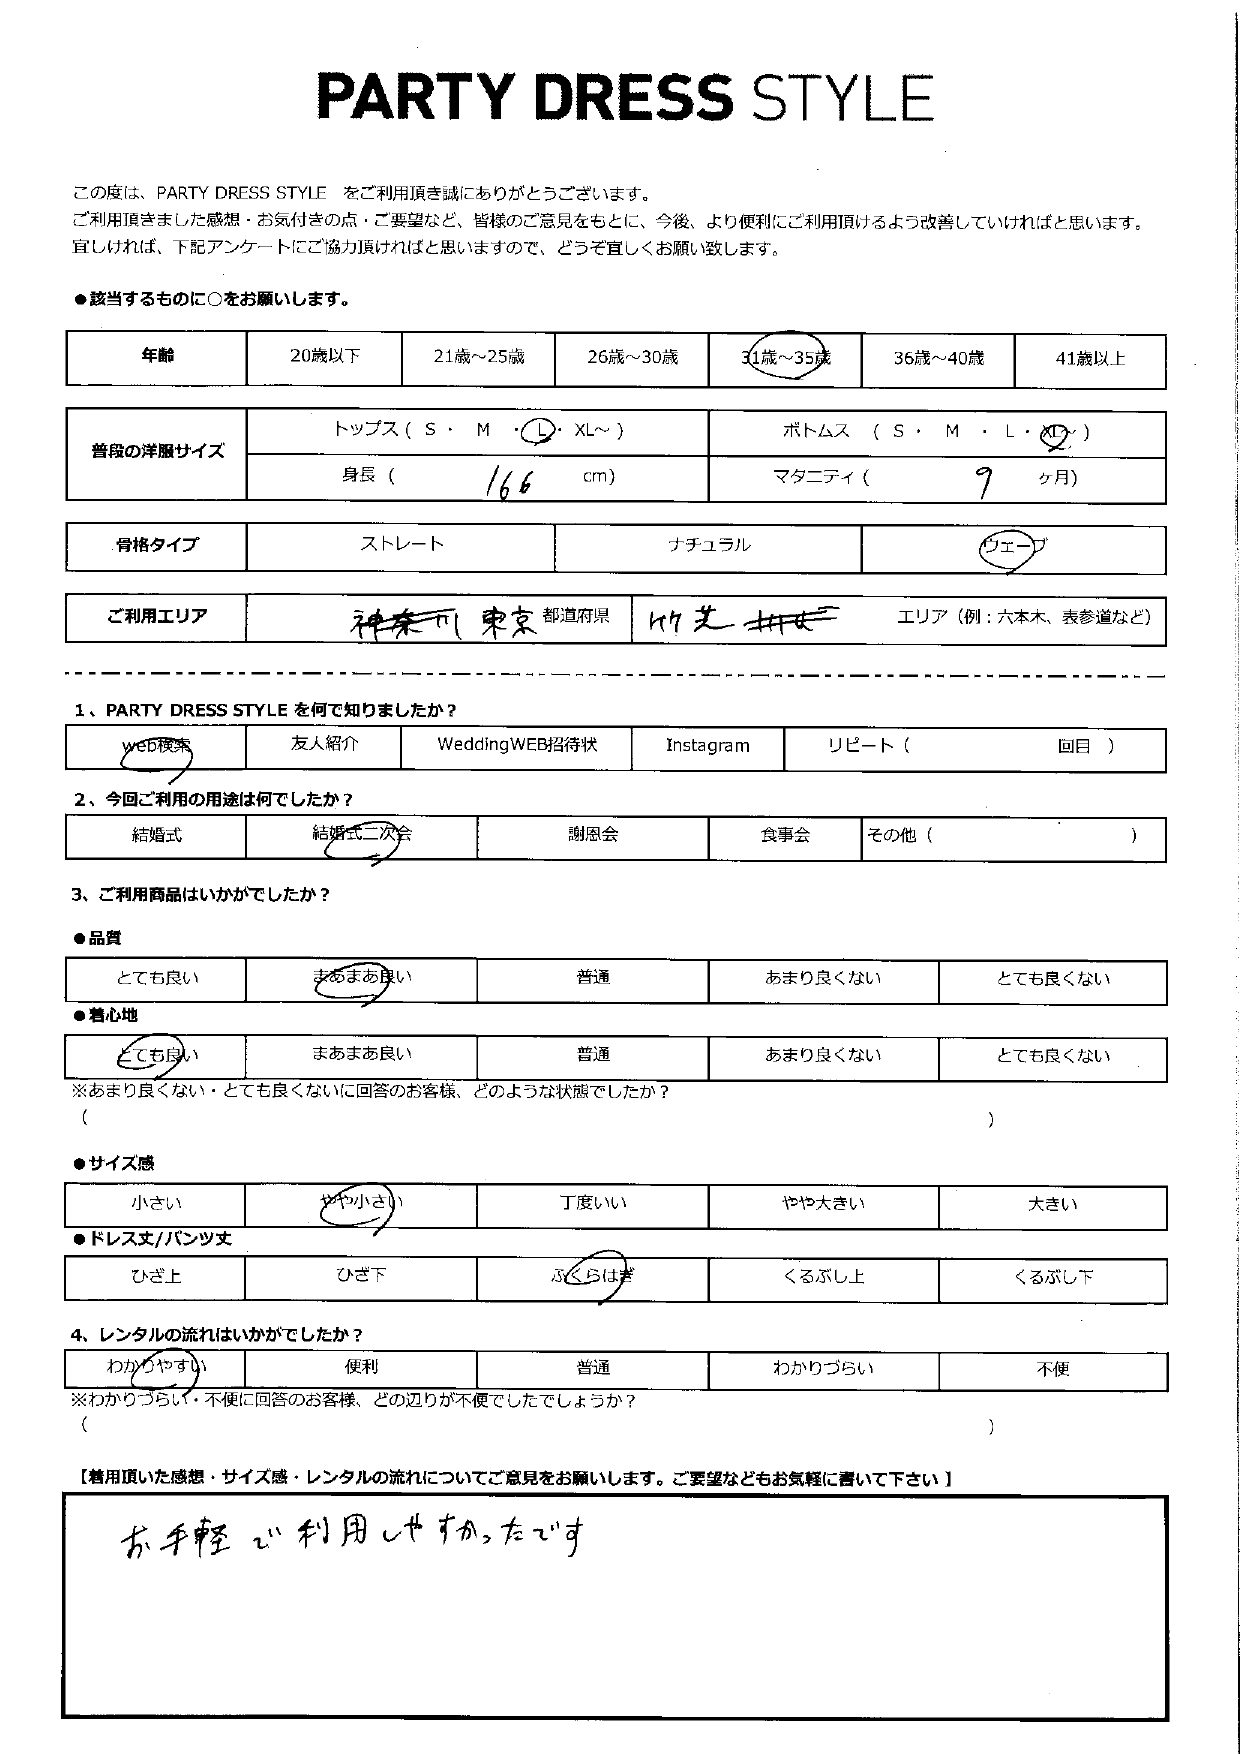 PARTY DRESS STYLE
この度は、PARTY DRESS STYLE をご利用頂き誠にありがとうございます。
ご利用頂きました感想・お気付きの点・ご要望など、皆様のご意見をもとに、今後、より便利にご利用頂けるよう改善していければと思います。
宜しければ、下記アンケートにご協力頂ければと思いますので、どうぞ宜しくお願い致します。
●該当するものに○をお願いします。
年齢 20歳以下 21歳～25歳 26歳～30歳 31歳～35歳 36歳～40歳 41歳以上
普段の洋服サイズ トップス ( S ・ M ・ L ・ XL～ ) ボトムス ( S ・ M ・ L ・ XL～ )
身長 ( 166 cm) マタニティ ( 9 ヶ月)
骨格タイプ ストレート ナチュラル ウェーブ
ご利用エリア 神奈川 東京 都道府県 竹芝 エリア（例：六本木、表参道など）
1、PARTY DRESS STYLE を何で知りましたか？
web検索 友人紹介 WeddingWEB招待状 Instagram リピート ( 回目 )
2、今回ご利用の用途は何でしたか？
結婚式 結婚式二次会 謝恩会 食事会 その他 ( )
3、ご利用商品はいかがでしたか？
●品質
とても良い まあまあ良い 普通 あまり良くない とても良くない
●着心地
とても良い まあまあ良い 普通 あまり良くない とても良くない
※あまり良くない・とても良くないに回答のお客様、どのような状態でしたか？
( )
●サイズ感
小さい やや小さい 丁度いい やや大きい 大きい
●ドレス丈/パンツ丈
ひざ上 ひざ下 ふくらはぎ くるぶし上 くるぶし下
4、レンタルの流れはいかがでしたか？
わかりやすい 便利 普通 わかりづらい 不便
※わかりづらい・不便に回答のお客様、どの辺りが不便でしたでしょうか？
( )
【着用頂いた感想・サイズ感・レンタルの流れについてご意見をお願いします。ご要望などもお気軽に書いて下さい 】
お手軽で利用しやすかったです